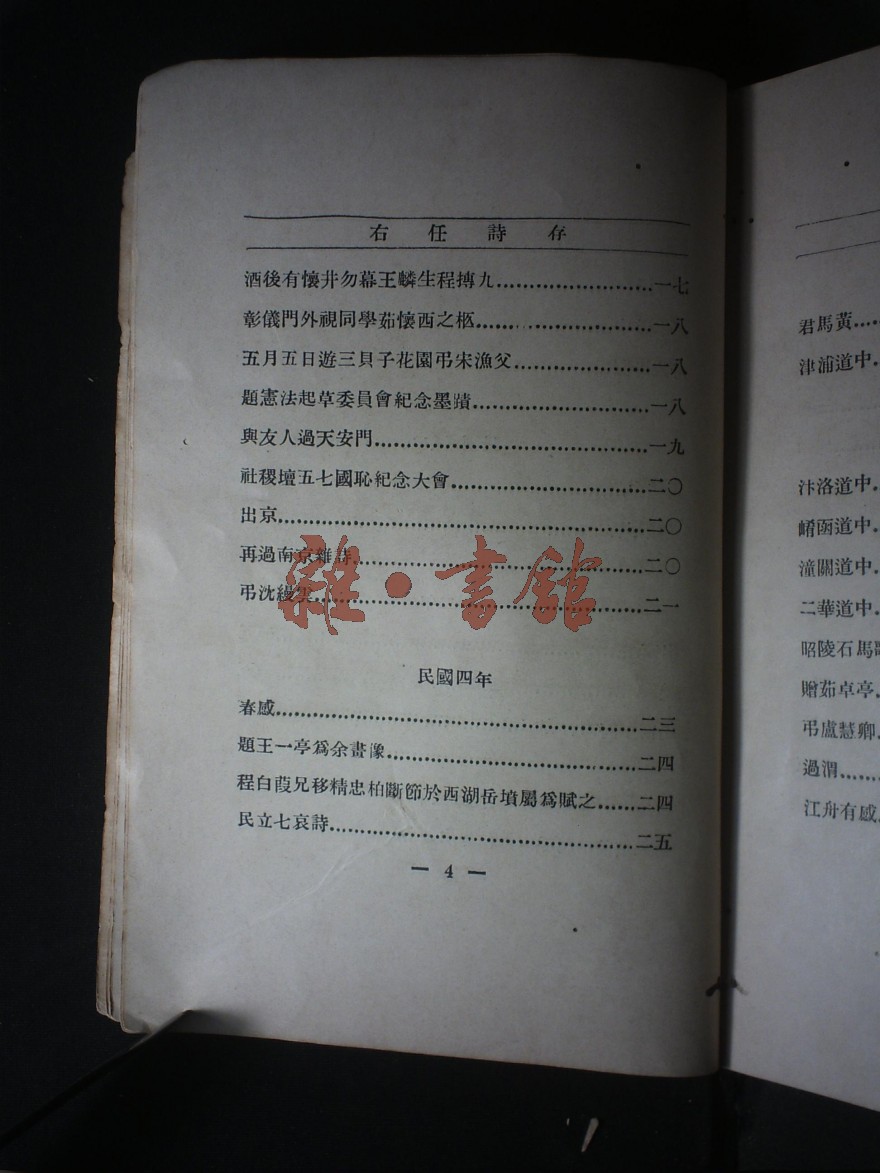 右任詩存
酒後有懷井勿幕王麟生程搏九……………………一七
彰儀門外視同學茹懷西之柩……………………一八
五月五日遊三貝子花園弔宋漁父……………………一八
題憲法起草委員會紀念墨蹟……………………一八
與友人過天安門……………………一九
社稷壇五七國恥紀念大會……………………二〇
出京……………………二〇
再過南京雜詩……………………二〇
弔沈縵雲……………………二一
民國四年
春感……………………二三
題王一亭爲余畫像……………………二四
程白葭兄移精忠柏斷節於西湖岳墳屬爲賦之……二四
民立七哀詩……………………二五
— 4 —
雜·書館
君馬黃
津浦道中
汴洛道中
崤函道中
潼關道中
二華道中
昭陵石馬
贈茹卓亭
弔盧慧卿
過渭
江舟有感